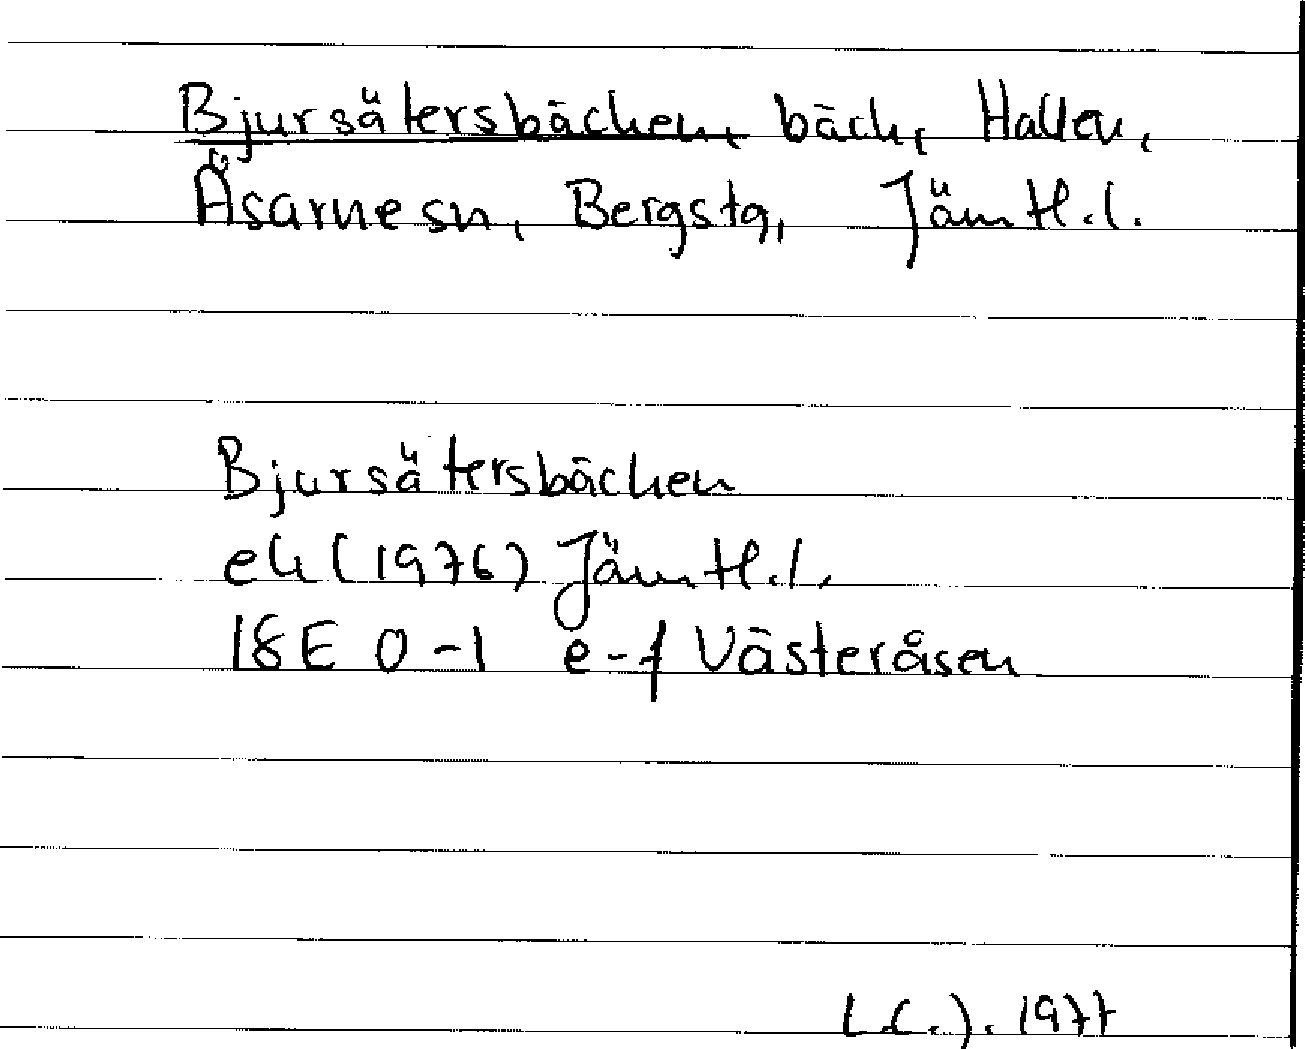 Bjursätersbäcken, bäck, Hallen,
Åsarne sn, Bergs tg, Jämtl.l.
Bjursätersbäcken
ek (1976) Jämtl.l.
18E 0-1 e-f Västeråsen
L.C.J. 1977